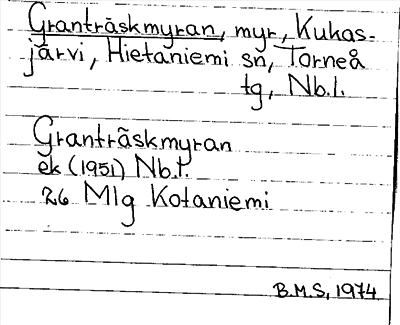 Granträskmyran, myr, Kukas-
järvi, Hietaniemi sn, Torneå
tg, Nb.l.
Granträskmyran
ek (1951) Nb.l.
26 Mlg Kotaniemi
B.M.S, 1974